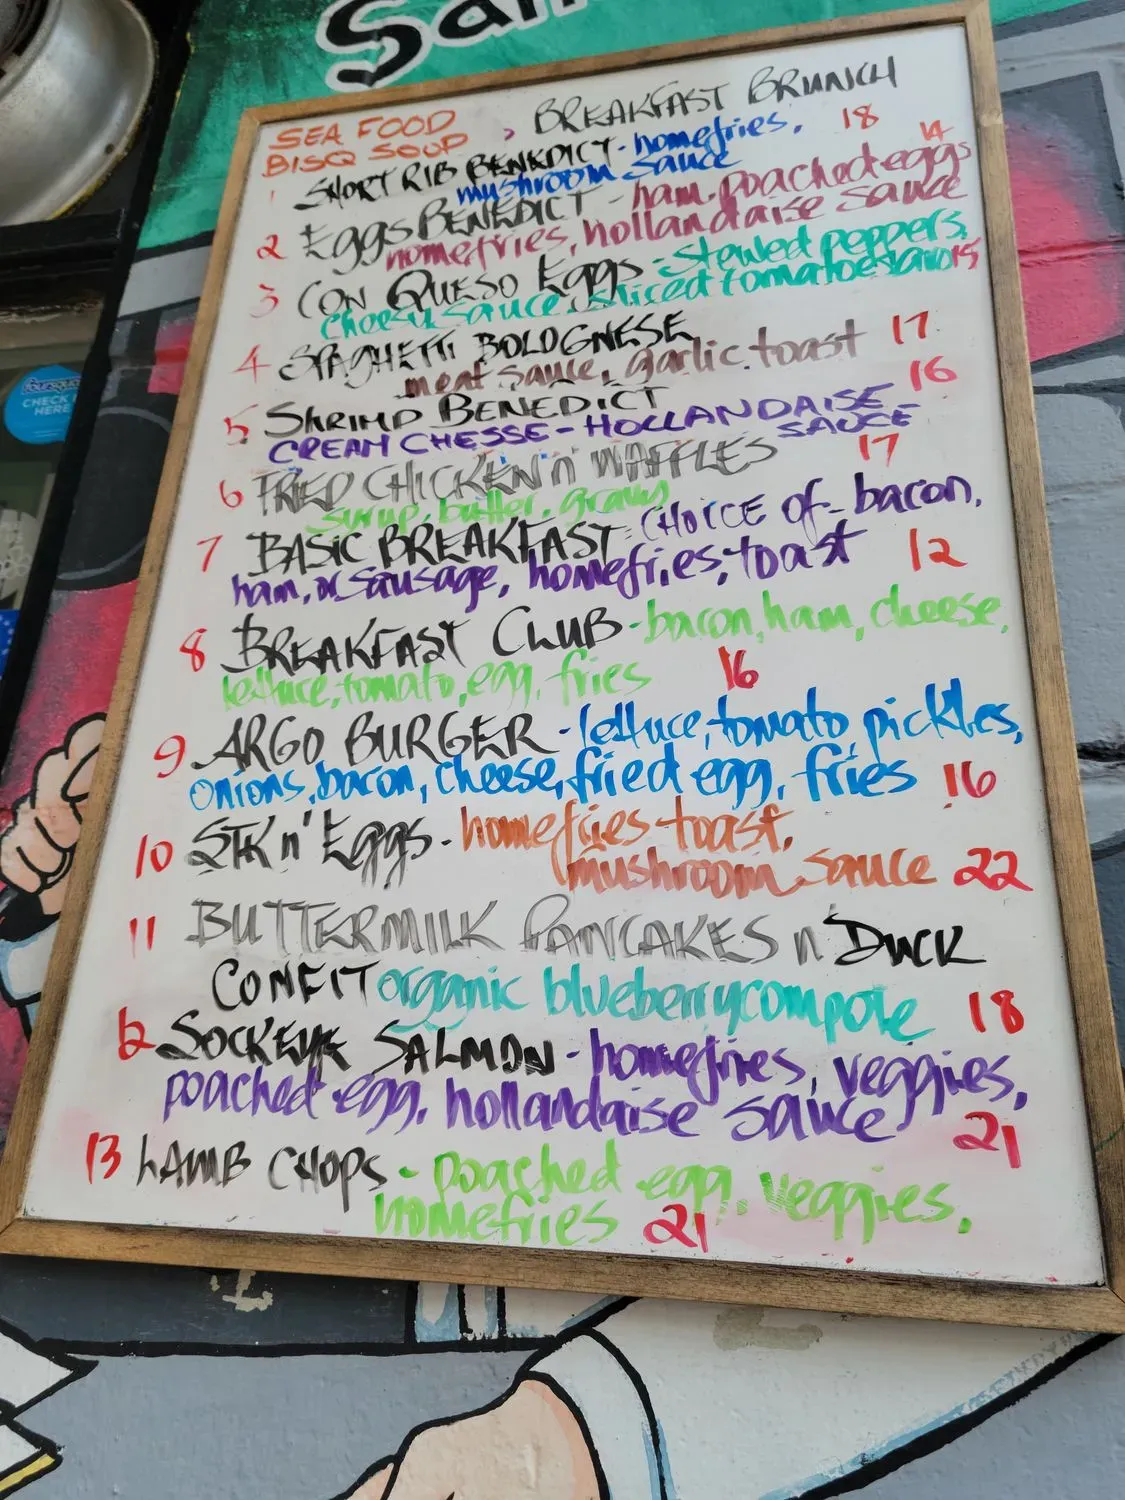 San
SEA FOOD
BISQ SOUP
BREAKFAST BRUNCH
1 SHORT RIB BENEDICT - homefries, 18
mushroom sauce
2 Eggs BENEDICT - ham, poached eggs 14
homefries, hollandaise sauce
3 CON QUESO Eggs - stewed peppers,
cheesy sauce, sliced tomatoes 15
4 SPAGHETTI BOLOGNESE
meat sauce, garlic toast 17
5 SHRIMP BENEDICT 16
CREAM CHESSE - HOLLANDAISE -
SAUCE
6 FRIED CHICKEN n' WAFFLES 17
syrup, butter, gravy
7 BASIC BREAKFAST - CHOICE of - bacon,
ham, or sausage, homefries, toast 12
8 BREAKFAST CLUB - bacon, ham, cheese,
lettuce, tomato, egg, fries 16
9 ARGO BURGER - lettuce, tomato, pickles,
onions, bacon, cheese, fried egg, fries 16
10 STK n' Eggs - homefries toast,
mushroom sauce 22
11 BUTTERMILK PANCAKES n DUCK
CONFIT organic blueberry compote 18
12 SOCKEYE SALMON - homefries, veggies,
poached egg, hollandaise sauce 21
13 LAMB CHOPS - poached egg, veggies,
homefries 21
foursquare
CHECK IN
HERE